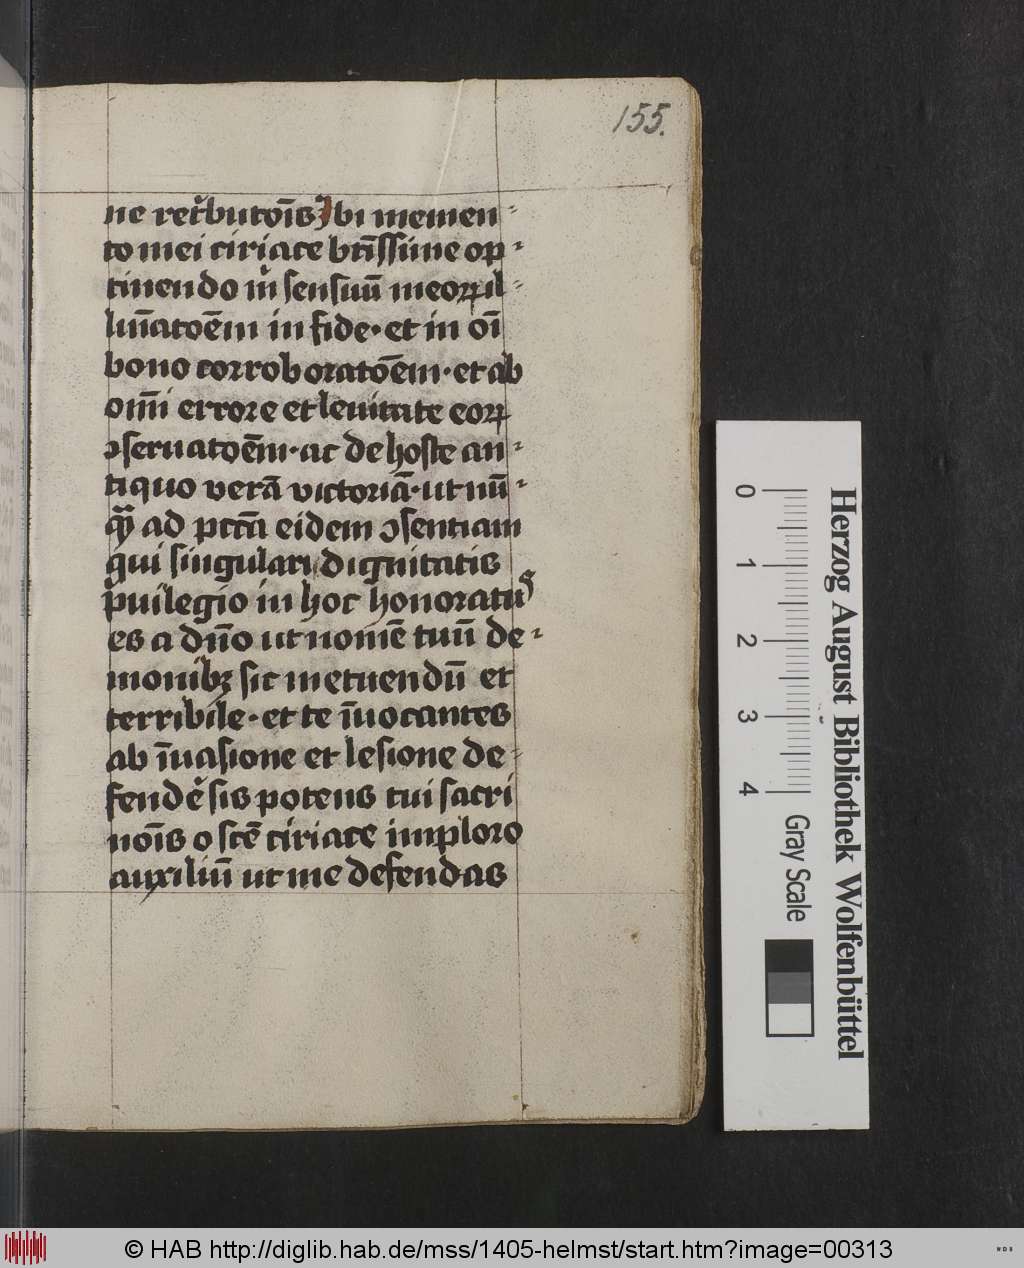 155.
ne ret᷑butoīs Ibi memen⸗
to mei ciriace btīssime op⸗
tinendo m̄ sensuū meoꝝ il⸗
lūīatoēm in fide· et in oī
bono corroboratōem· et ab
omī errore et leuitate eoꝝ
ꝯseruatoēm· ac de hoste an⸗
tiquo verā victoriā· ut nū⸗
qᷓ ad pctā eidem ꝯsentiam
qui singulari dignitatis
p̑uilegio in hoc honoratꝰ
es a dn̄o ut nomē tuū de⸗
monibꝫ sic metuendū et
terribile· et te īuocantes
ab īuasione et lesione de⸗
fendēsis potens tui sacri
noīs o scē ciriace imploro
auxiliū ut me defendas
Herzog August Bibliothek Wolfenbüttel
0 1 2 3 4
Gray Scale
© HAB http://diglib.hab.de/mss/1405-helmst/start.htm?image=00313